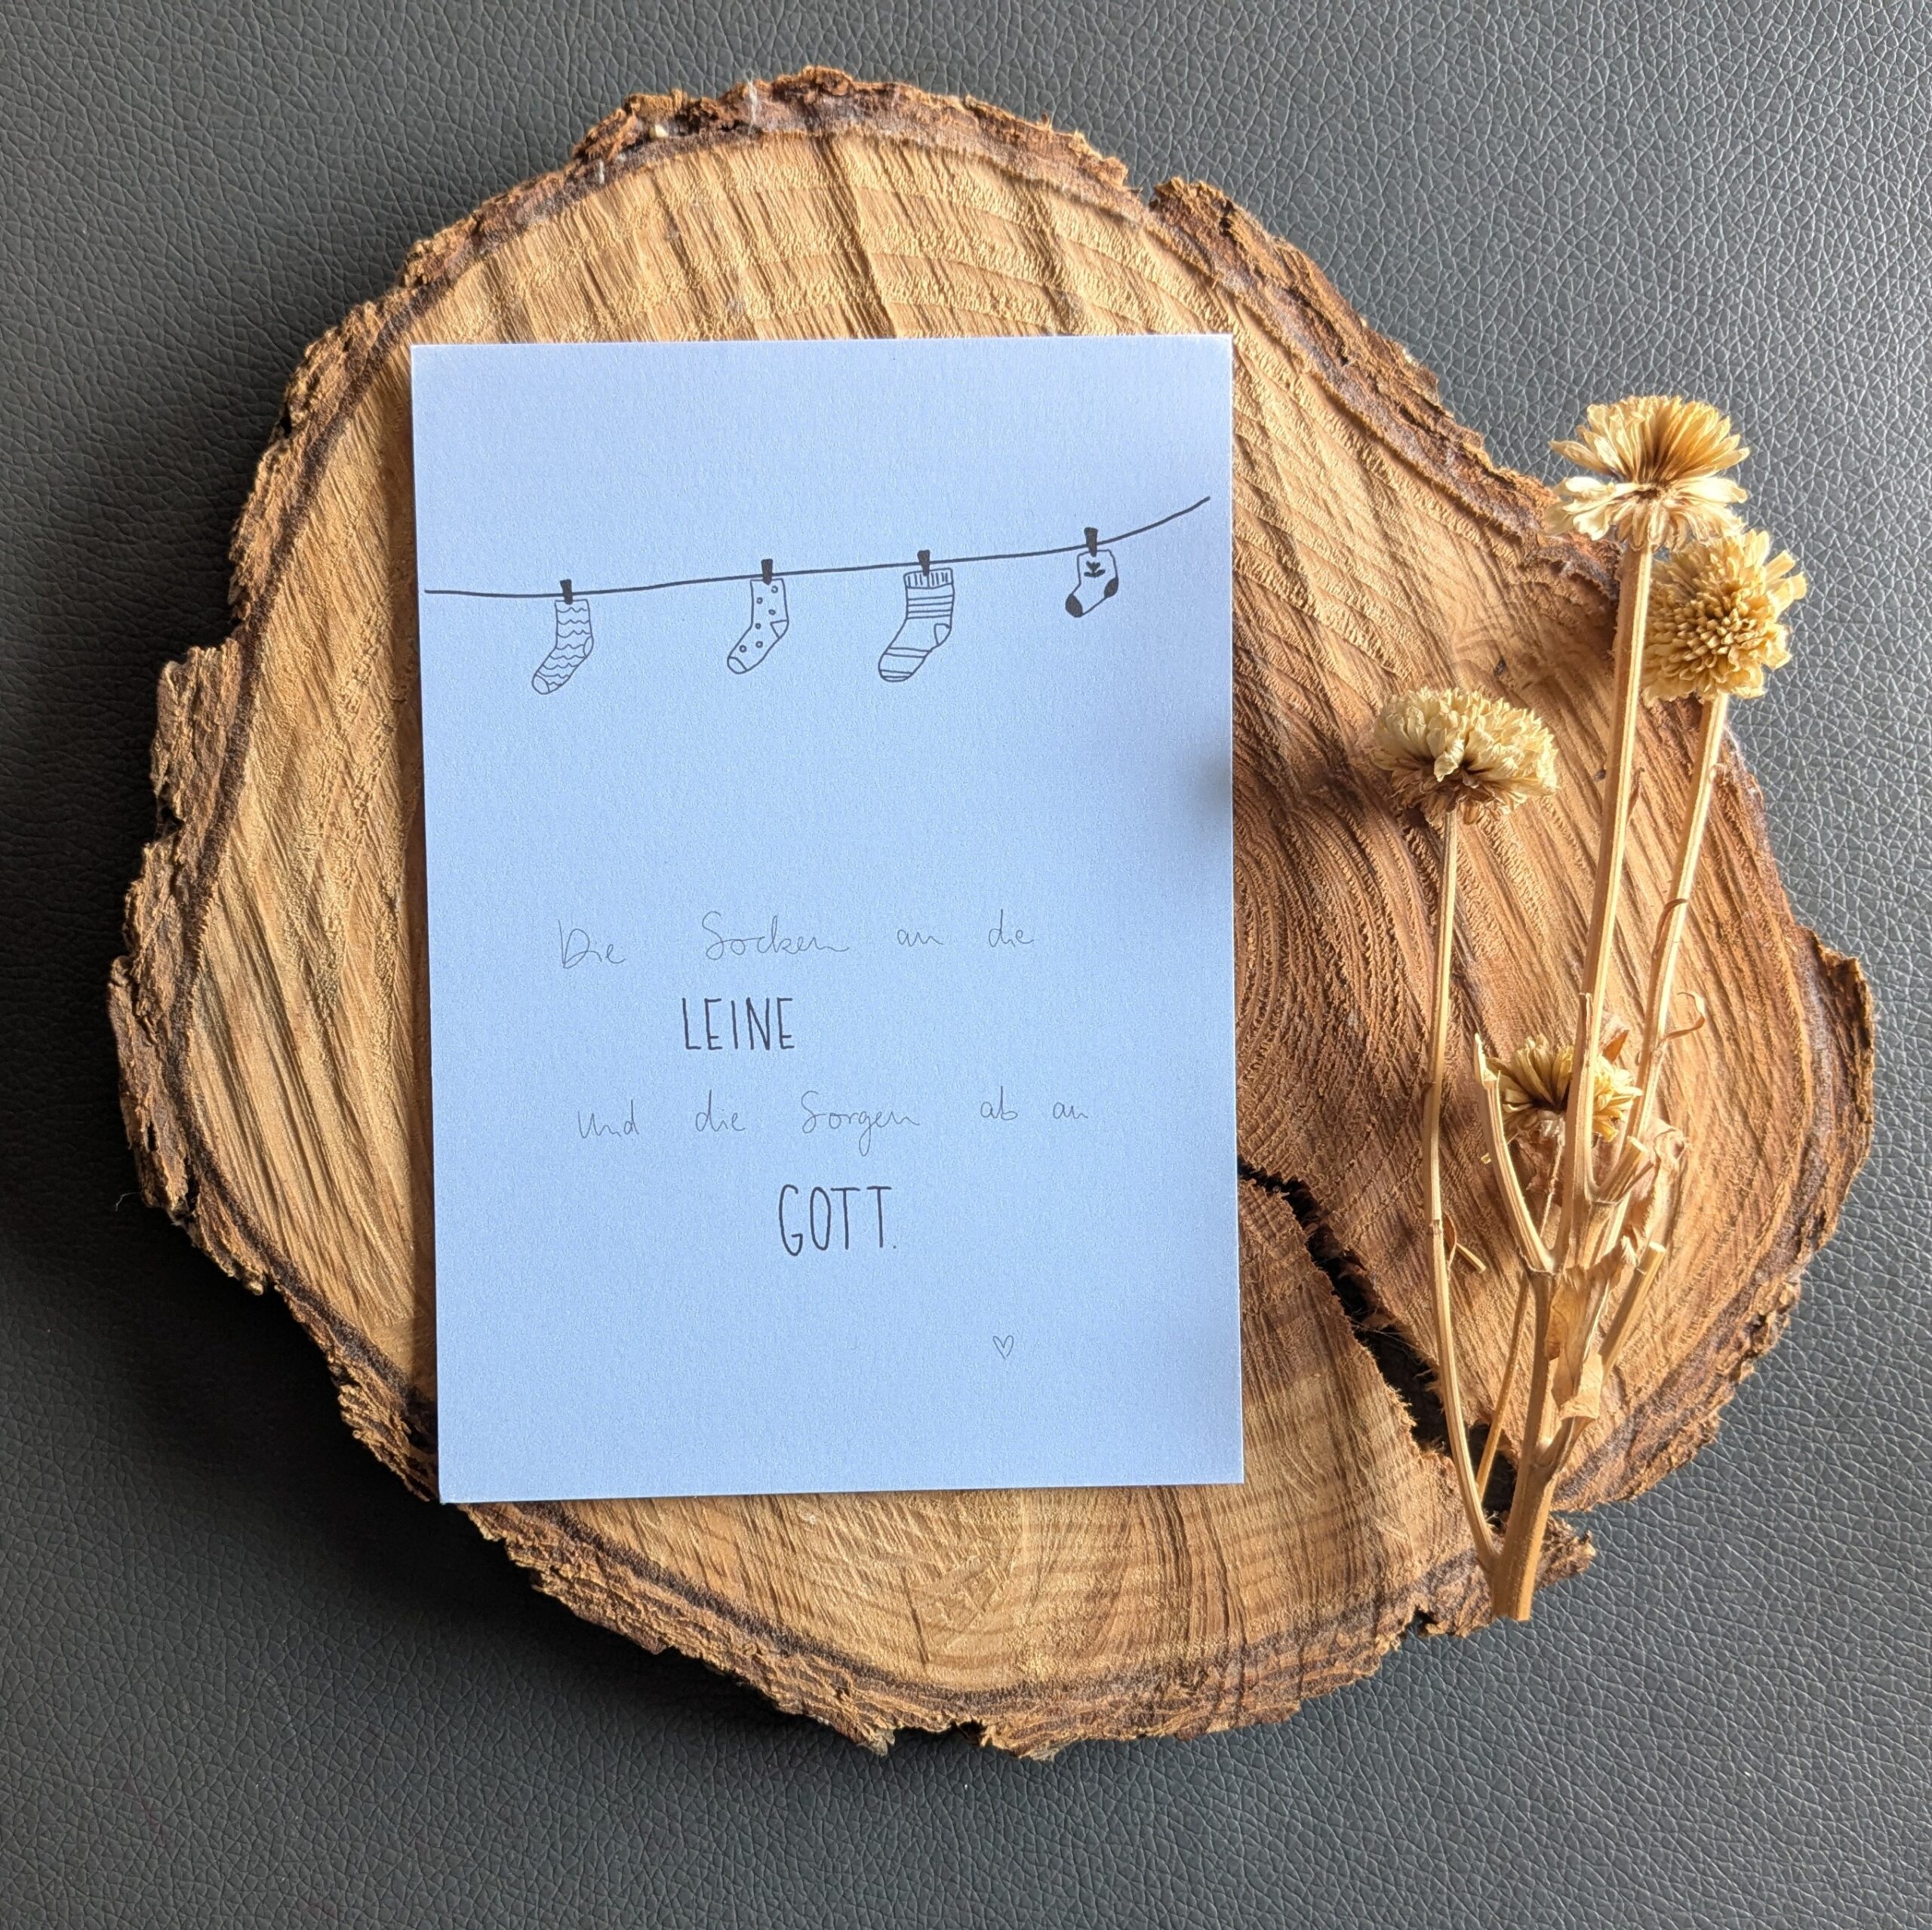 Die Socken an die
LEINE
und die Sorgen ab an
GOTT.